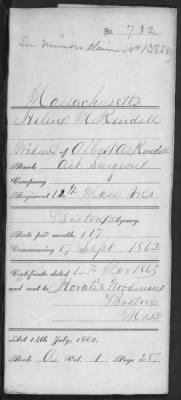 No. 782
See minors claim No 138583
Massachusetts
Helene M Kendall
Widow of Albert A Kendall
Rank Ast Surgeon
Company
Regiment 12th Mass Vols
Boston Agency.
Rate per month, $17
Commencing 17 Sept 1862
Certificate dated 4th Mar 1863
and sent to Horatio Woodman
Boston
Mass
Act 14th July, 1862.
Book A Vol. 1 Page 257